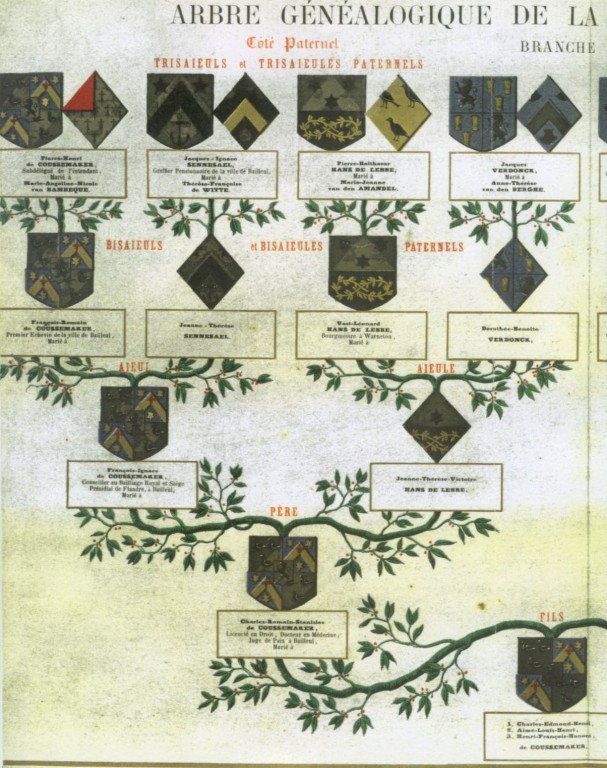 ARBRE GÉNÉALOGIQUE DE LA
Côté Paternel
BRANCHE
TRISAIEULS et TRISAIEULES PATERNELS
Pierre-Henri
de COUSSEMAKER,
Subdélégué de l'intendant
Marié à
Marie-Angeline-Nicole
van RAMBEQUE.
Jacques-Ignace
SENNESAEL,
Greffier Pensionnaire de la ville de Bailleul,
Marié à
Thérèse-Françoise
de WITTE.
Pierre-Balthasar
HANS DE LESBE,
Marié à
Marie-Jeanne
van den AMANDEL.
Jacques
VERDONCK,
Marié à
Anne-Thérèse
van den BERGHE.
BISAIEULS et BISAIEULES PATERNELS
François-Romain
de COUSSEMAKER,
Premier Echevin de la ville de Bailleul,
Marié à
Jeanne-Thérèse
SENNESAEL
Vast-Léonard
HANS DE LESBE,
Bourgmestre à Warneton,
Marié à
Dorothée-Benoite
VERDONCK,
AIEUL
AIEULE
François-Ignace
de COUSSEMAKER,
Conseiller au Bailliage Royal et Siège
Présidial de Flandre, à Bailleul,
Marié à
Jeanne-Thérèse-Victoire
HANS DE LESBE,
PÈRE
Charles-Romain-Stanislas
de COUSSEMAKER,
Licencié en Droit, Docteur en Médecine,
Juge de Paix à Bailleul,
Marié à
FILS
1. Charles-Edmond-Henri,
2. Aimé-Louis-Henri,
3. Henri-François
de COUSSEMAKER.